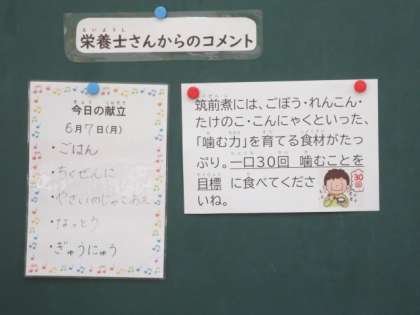 栄養士さんからのコメント
今日の献立
6月7日(月)
・ごはん
・ちくぜんに
・やさいのじゃこあえ
・なっとう
・ぎゅうにゅう
筑前煮には、ごぼう・れんこん・
たけのこ・こんにゃくといった、
「噛む力」を育てる食材がたっ
ぷり。一口30回 噛むことを
目標 に食べてくださ
いね。
30回